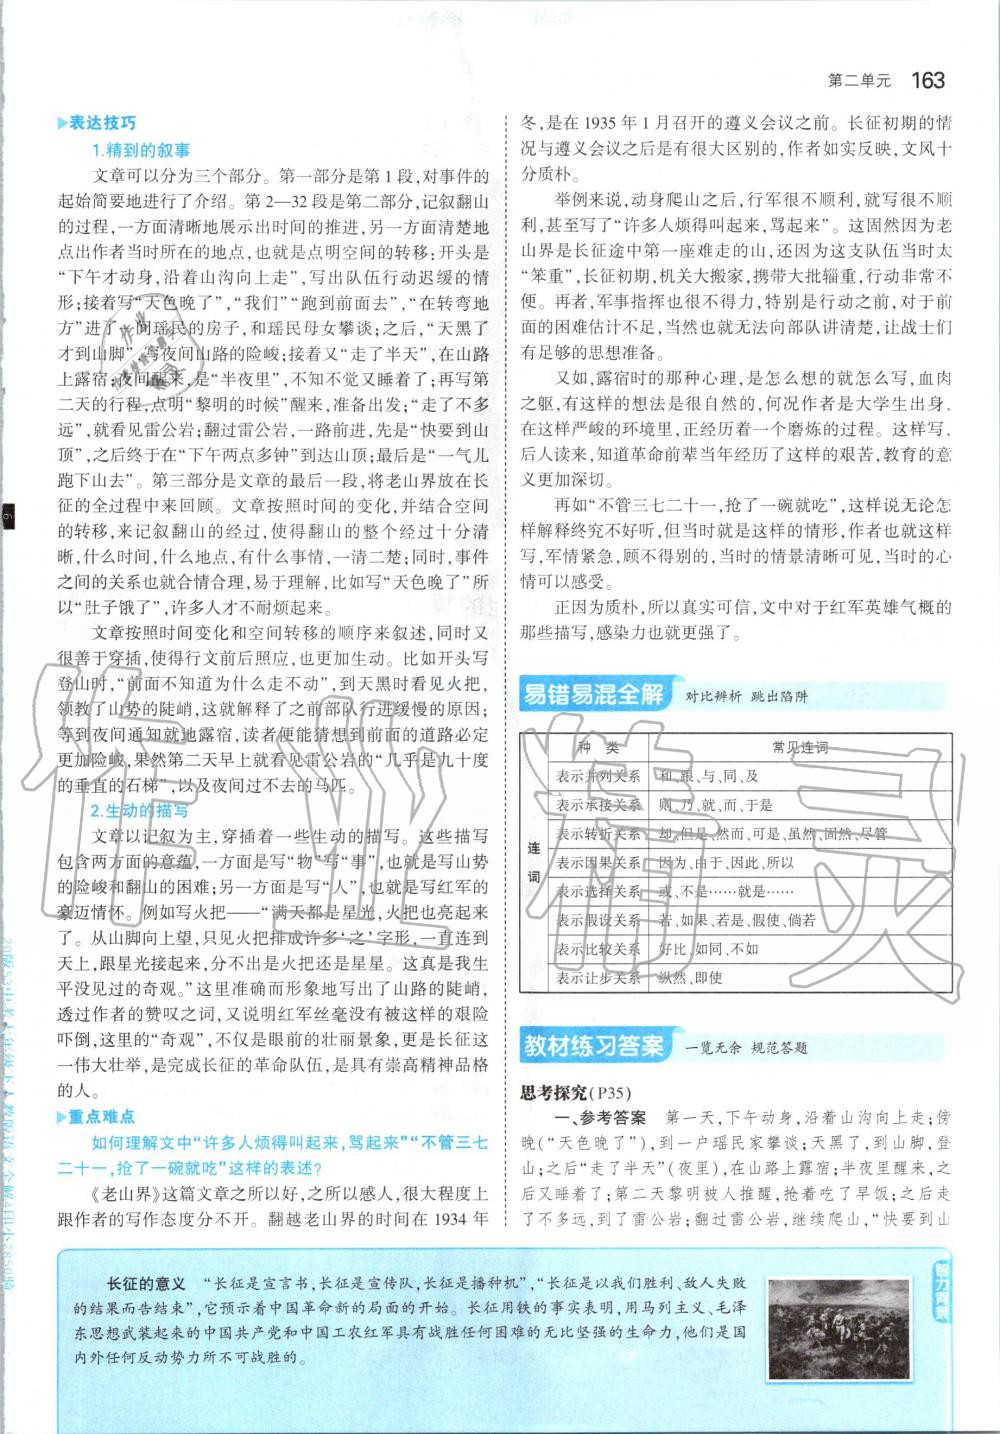 第二单元 163
▶表达技巧
1.精到的叙事
文章可以分为三个部分。第一部分是第1段,对事件的
起始简要地进行了介绍。第2—32段是第二部分,记叙翻山
的过程,一方面清晰地展示出时间的推进,另一方面清楚地
点出作者当时所在的地点,也就是点明空间的转移:开头是
“下午才动身,沿着山沟向上走”,写出队伍行动迟缓的情
形;接着写“天色晚了”,“我们”“跑到前面去”,“在转弯地
方”进了一间瑶民的房子,和瑶民母女攀谈;之后,“天黑了
才到山脚”,写夜间山路的险峻;接着又“走了半天”,在山路
上露宿;夜间醒来,是“半夜里”,不知不觉又睡着了;再写第
二天的行程,点明“黎明的时候”醒来,准备出发;“走了不多
远”,就看见雷公岩;翻过雷公岩,一路前进,先是“快要到山
顶”,之后终于在“下午两点多钟”到达山顶;最后是“一气儿
跑下山去”。第三部分是文章的最后一段,将老山界放在长
征的全过程中来回顾。文章按照时间的变化,并结合空间
的转移,来记叙翻山的经过,使得翻山的整个经过十分清
晰,什么时间,什么地点,有什么事情,一清二楚;同时,事件
之间的关系也就合情合理,易于理解,比如写“天色晚了”所
以“肚子饿了”,许多人才不耐烦起来。
文章按照时间变化和空间转移的顺序来叙述,同时又
很善于穿插,使得行文前后照应,也更加生动。比如开头写
登山时,“前面不知道为什么走不动”,到天黑时看见火把,
领教了山势的陡峭,这就解释了之前部队行进缓慢的原因;
等到夜间通知就地露宿,读者便能猜想到前面的道路必定
更加险峻,果然第二天早上就看见雷公岩的“几乎是九十度
的垂直的石梯”,以及夜间过不去的马匹。
2.生动的描写
文章以记叙为主,穿插着一些生动的描写。这些描写
包含两方面的意蕴,一方面是写“物”写“事”,也就是写山势
的险峻和翻山的困难;另一方面是写“人”,也就是写红军的
豪迈情怀。例如写火把——“满天都是星光,火把也亮起来
了。从山脚向上望,只见火把排成许多‘之’字形,一直连到
天上,跟星光接起来,分不出是火把还是星星。这真是我生
平没见过的奇观。”这里准确而形象地写出了山路的陡峭,
透过作者的赞叹之词,又说明红军丝毫没有被这样的艰险
吓倒,这里的“奇观”,不仅是眼前的壮丽景象,更是长征这
一伟大壮举,是完成长征的革命队伍,是具有崇高精神品格
的人。
▶重点难点
如何理解文中“许多人烦得叫起来,骂起来”“不管三七
二十一,抢了一碗就吃”这样的表述?
《老山界》这篇文章之所以好,之所以感人,很大程度上
跟作者的写作态度分不开。翻越老山界的时间在1934年
冬,是在1935年1月召开的遵义会议之前。长征初期的情
况与遵义会议之后是有很大区别的,作者如实反映,文风十
分质朴。
举例来说,动身爬山之后,行军很不顺利,就写很不顺
利,甚至写了“许多人烦得叫起来,骂起来”。这固然因为老
山界是长征途中第一座难走的山,还因为这支队伍当时太
“笨重”,长征初期,机关大搬家,携带大批辎重,行动非常不
便。再者,军事指挥也很不得力,特别是行动之前,对于前
面的困难估计不足,当然也就无法向部队讲清楚,让战士们
有足够的思想准备。
又如,露宿时的那种心理,是怎么想的就怎么写,血肉
之躯,有这样的想法是很自然的,何况作者是大学生出身,
在这样严峻的环境里,正经历着一个磨炼的过程。这样写,
后人读来,知道革命前辈当年经历了这样的艰苦,教育的意
义更加深切。
再如“不管三七二十一,抢了一碗就吃”,这样说无论怎
样解释终究不好听,但当时就是这样的情形,作者也就这样
写,军情紧急,顾不得别的,当时的情景清晰可见,当时的心
情可以感受。
正因为质朴,所以真实可信,文中对于红军英雄气概的
那些描写,感染力也就更强了。
易错易混全解 对比辨析 跳出陷阱
种 类 常见连词
连词
表示并列关系 和、跟、与、同、及
表示承接关系 则、乃、就、而、于是
表示转折关系 却、但是、然而、可是、虽然、固然、尽管
表示因果关系 因为、由于、因此、所以
表示选择关系 或、不是……就是……
表示假设关系 若、如果、若是、假使、倘若
表示比较关系 好比、如同、不如
表示让步关系 纵然、即使
教材练习答案 一览无余 规范答题
思考探究(P35)
一、参考答案 第一天,下午动身,沿着山沟向上走;傍
晚(“天色晚了”),到一户瑶民家攀谈;天黑了,到山脚,登
山;之后“走了半天”(夜里),在山路上露宿;半夜里醒来,之
后又睡着了;第二天黎明被人推醒,抢着吃了早饭;之后走
了不多远,到了雷公岩;翻过雷公岩,继续爬山,“快要到山
智力背景
长征的意义 “长征是宣言书,长征是宣传队,长征是播种机”,“长征是以我们胜利、敌人失败
的结果而告结束”,它预示着中国革命新的局面的开始。长征用铁的事实表明,用马列主义、毛泽
东思想武装起来的中国共产党和中国工农红军具有战胜任何困难的无比坚强的生命力,他们是国
内外任何反动势力所不可战胜的。
作业精灵